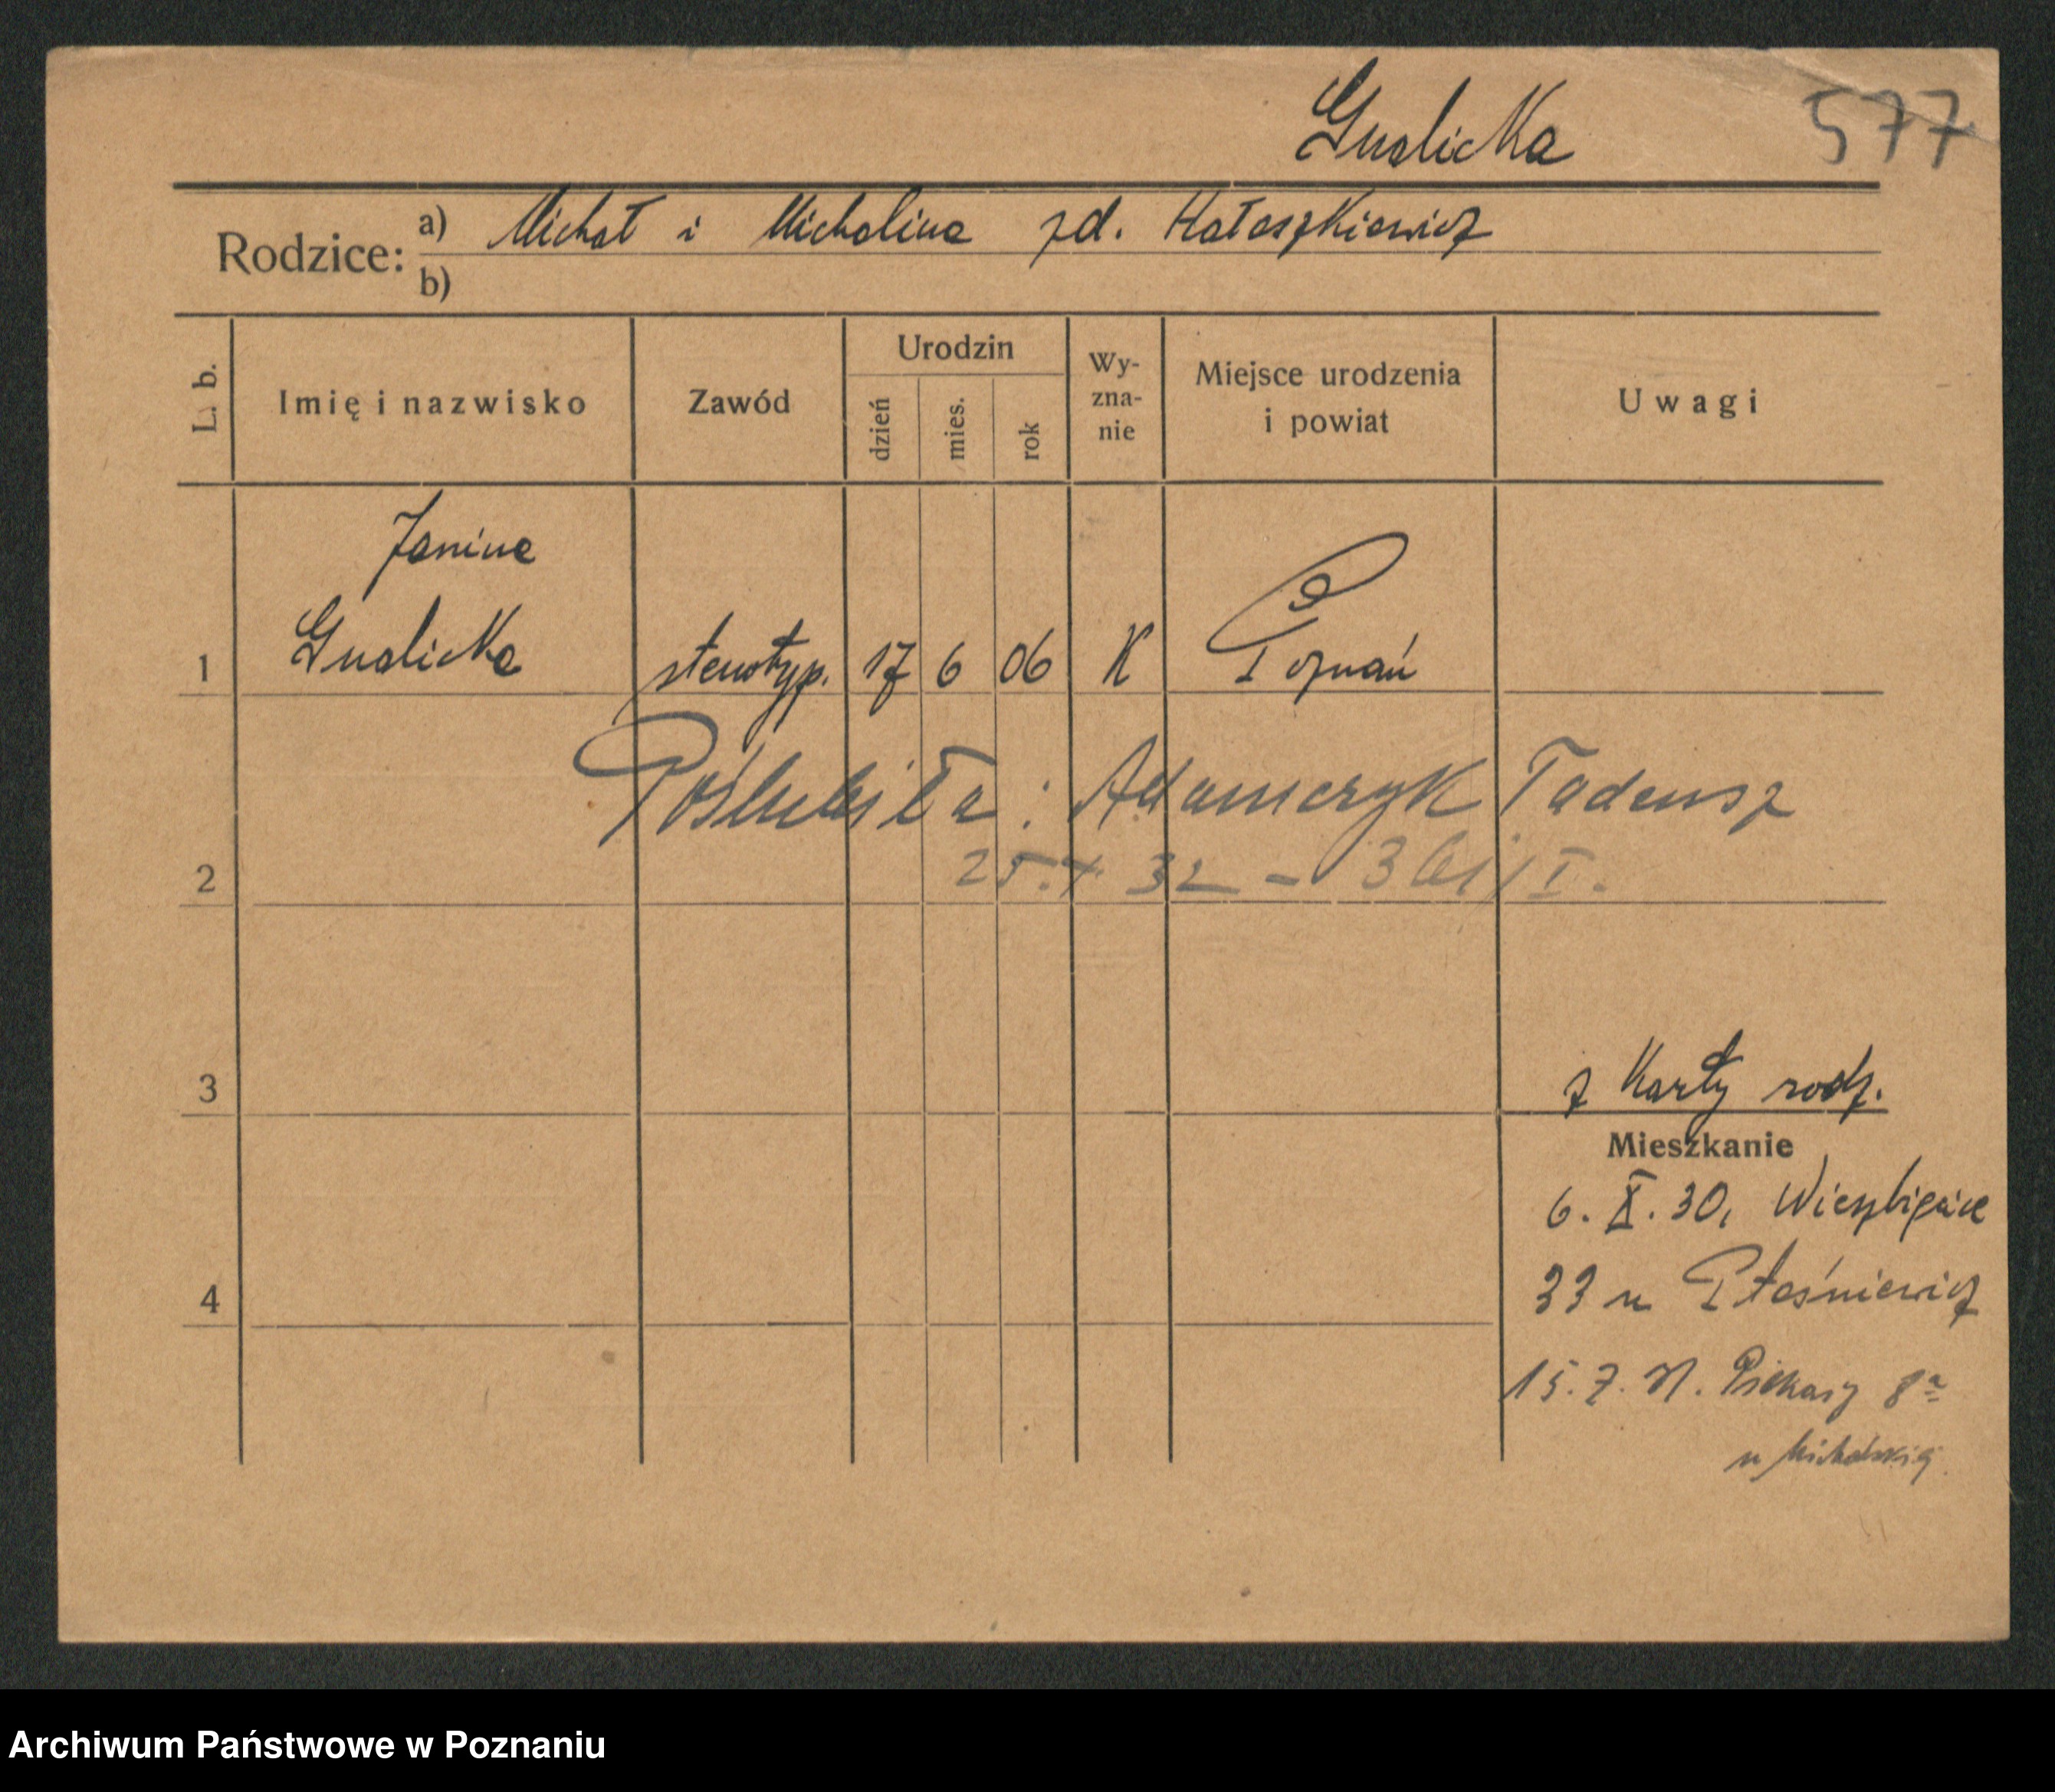 Gualicka
577
Rodzice: a) Michał i Michalina zd. Hałaszkiewicz
b)
L. b.
Imię i nazwisko
Zawód
Urodzin
dzień
mies.
rok
Wy-
zna-
nie
Miejsce urodzenia
i powiat
Uwagi
Janina
1 Gualicka stenotyp. 17 6 06 K Poznań
Poślubiła: Adamczyk Tadeusz
2 25. 32 -
3 z Karty rodz.
Mieszkanie
6. X. 30,
4 33 u Ptaśniewicz
15. 7. 31. Piekary 8a
u
Archiwum Państwowe w Poznaniu